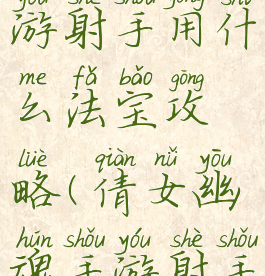 yóu shè shǒu yòng shí
游射手用什
me fǎ bǎo gōng
么法宝攻
lüè qiàn nǚ yōu
略(倩女幽
hún shǒu yóu shè shǒu
魂手游射手